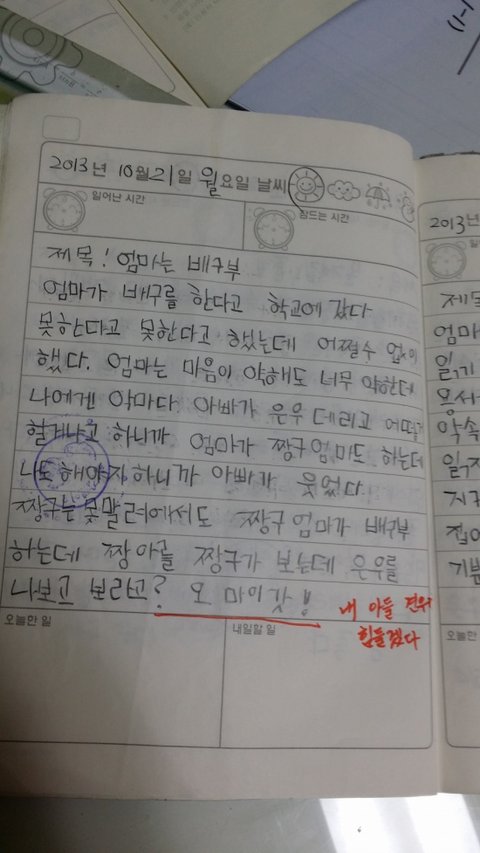 2013년 10월 21일 월요일 날씨
일어난 시간
잠드는 시간
제목! 엄마는 배구부
엄마가 배구를 한다고 학교에 갔다
못한다고 못한다고 했는데 어쩔수 없이
했다. 엄마는 마음이 약해도 너무 약한데
나에겐 악마다. 아빠가 은우 데리고 어떠게
할거냐고 하니까 엄마가 짱구엄마도 하는데
나도 해야지 하니까 아빠가 웃었다
짱구는 못말려에서도 짱구엄마가 배구부
하는데 짱아를 짱구가 보는데 은우를
나보고 보라고? 오 마이갓!!
내 아들 건우
힘들겠다
오늘한 일
내일할 일
2013년
제목
엄마
일기
약속
지구
접어
기분
오늘한 일